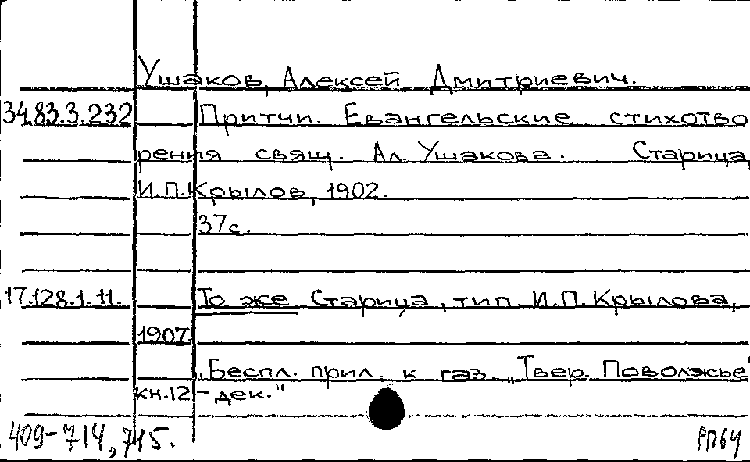 Ушаков, Алексей Дмитриевич.
34.83.3.232 Притчи. Евангельские стихотво
рения свящ. Ал. Ушакова. Старица,
И.П.Крылов, 1902.
37с.
17.128.1.11. То же Старица, тип. И.П.Крылова,
1907.
„Беспл. прил. к газ. „Твер. Поволжье"
кн.12 - дек."
409-714, 715.
РП64